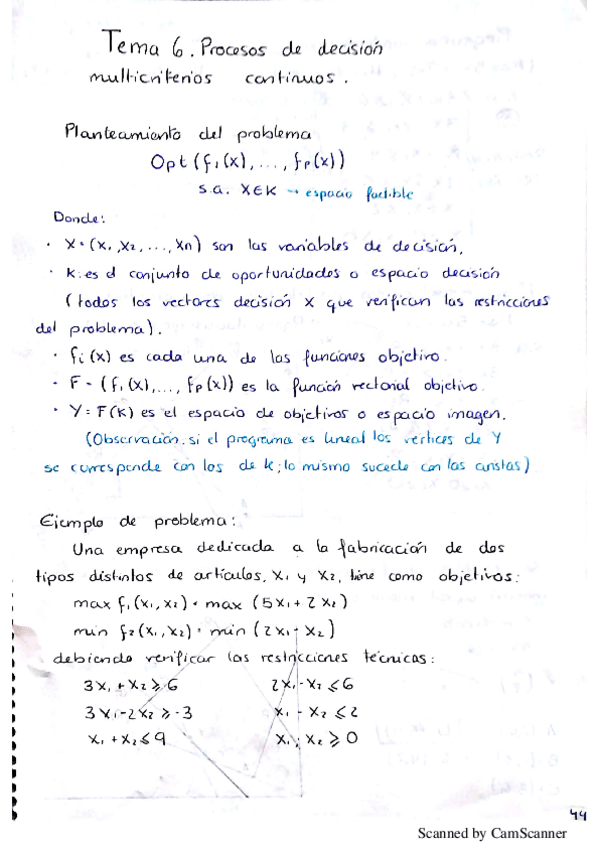 Tema 6. Procesos de decisión
multicriterios continuos.
Planteamiento del problema
Opt (f₁(x), ..., fₚ(x))
s.a. x∈K → espacio factible
Donde:
· X = (x₁, x₂, ..., xₙ) son las variables de decisión.
· K: es el conjunto de oportunidades o espacio decisión
(todos los vectores decisión x que verifican las restricciones
del problema).
· fᵢ(x) es cada una de las funciones objetivo.
· F = (f₁(x), ..., fₚ(x)) es la función vectorial objetivo.
· Y = F(K) es el espacio de objetivos o espacio imagen.
(Observación: si el programa es lineal los vertices de Y
se corresponde con los de K; lo mismo sucede con las aristas)
Ejemplo de problema:
Una empresa dedicada a la fabricación de dos
tipos distintos de artículos, x₁ y x₂, tiene como objetivos:
max f₁(x₁, x₂) = max (5x₁ + 2x₂)
min f₂(x₁, x₂) = min (2x₁ - x₂)
debiendo verificar las restricciones técnicas:
3x₁ + x₂ ≥ 6 2x₁ - x₂ ≤ 6
3x₁ - 2x₂ ≥ -3 x₁ - x₂ ≤ 2
x₁ + x₂ ≤ 9 x₁, x₂ ≥ 0
44
Scanned by CamScanner